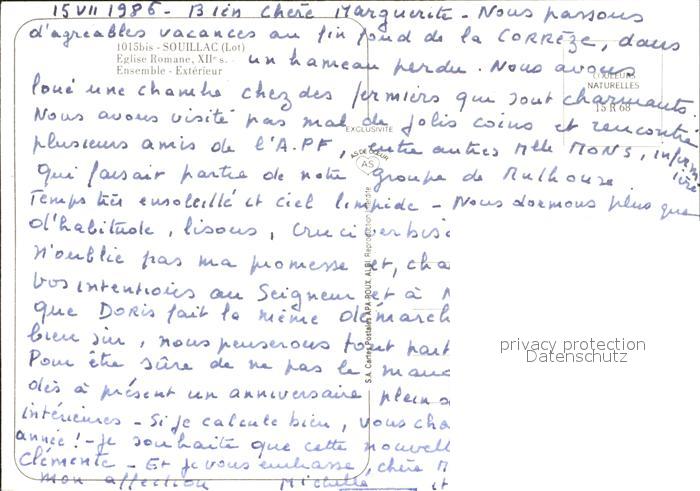 15 VII 1986 - Bien Chère Marguerite - Nous passons
d'agréables vacances au fin fond de la CORRÈZE, dans
1015bis - SOUILLAC (Lot)
Eglise Romane, XIIe s.
Ensemble - Extérieur
un hameau perdu. Nous avons
COULEURS
NATURELLES
15 R 68
loué une chambre chez des fermiers qui sont charmants.
Nous avons visité pas mal de jolis coins et rencontré
EXCLUSIVITÉ
plusieurs amis de l'A.P.F, entre autres Mlle MONS, infirmière
AS DE CŒUR
AS
qui faisait partie de notre groupe de Mulhouse
Temps très ensoleillé et ciel limpide - Nous dormons plus que
d'habitude, lisons, cruciverbis
N'oublie pas ma promesse et, cha
vos intentions au Seigneur et à
que DORIS fait la même démarch
bien sûr, nous penserons tout part
Pour être sûre de ne pas le manq
dès à présent un anniversaire plein
intérieures - Si je calcule bien, vous cha
année ! - Je souhaite que cette nouvell
Clémente - Et je vous embrasse, chère M
mon affection Michelle et
S.A. Cartes Postales APA-POUX ALBI Reproduction interdite
privacy protection
Datenschutz